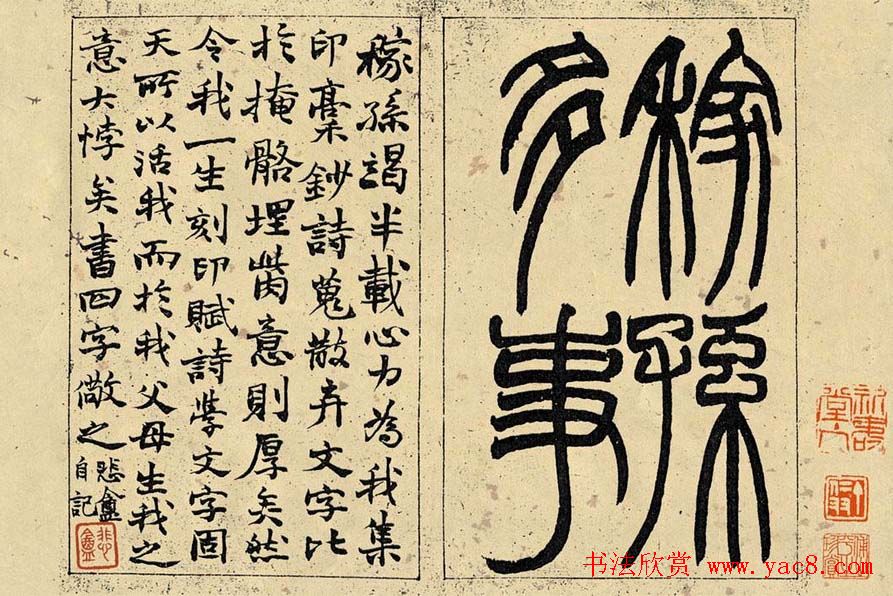 稼孫
多事
稼孫竭半載心力為我集
印稾鈔詩蒐散弃文字比
於掩骼埋胔意則厚矣然
令我一生刻印賦詩學文字固
天所以活我而於我父母生我之
意大悖矣書四字儆之
悲盦
自記
悲盦
书法欣赏 www.yac8.com